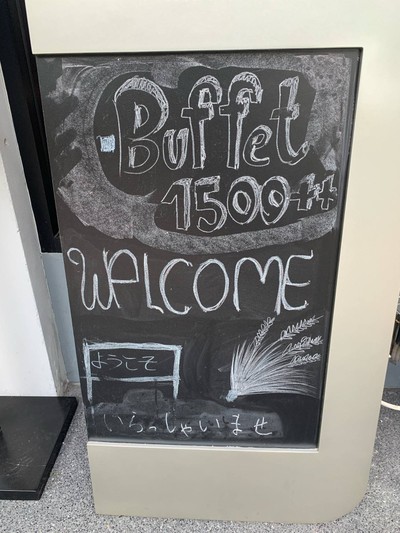 Buffet
1500++
WELCOME
ようこそ
いらっしゃいませ